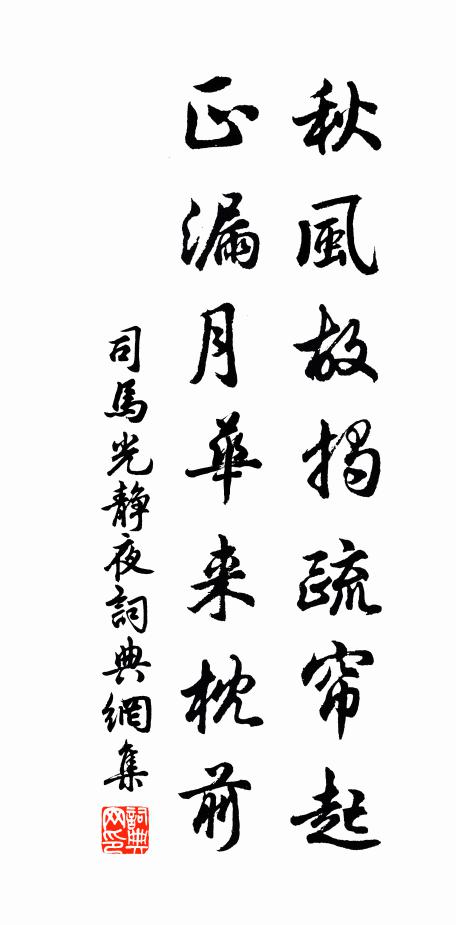 秋風故揭疏帘起
正漏月華来枕前
司馬光靜夜詞典網集
詞典网印